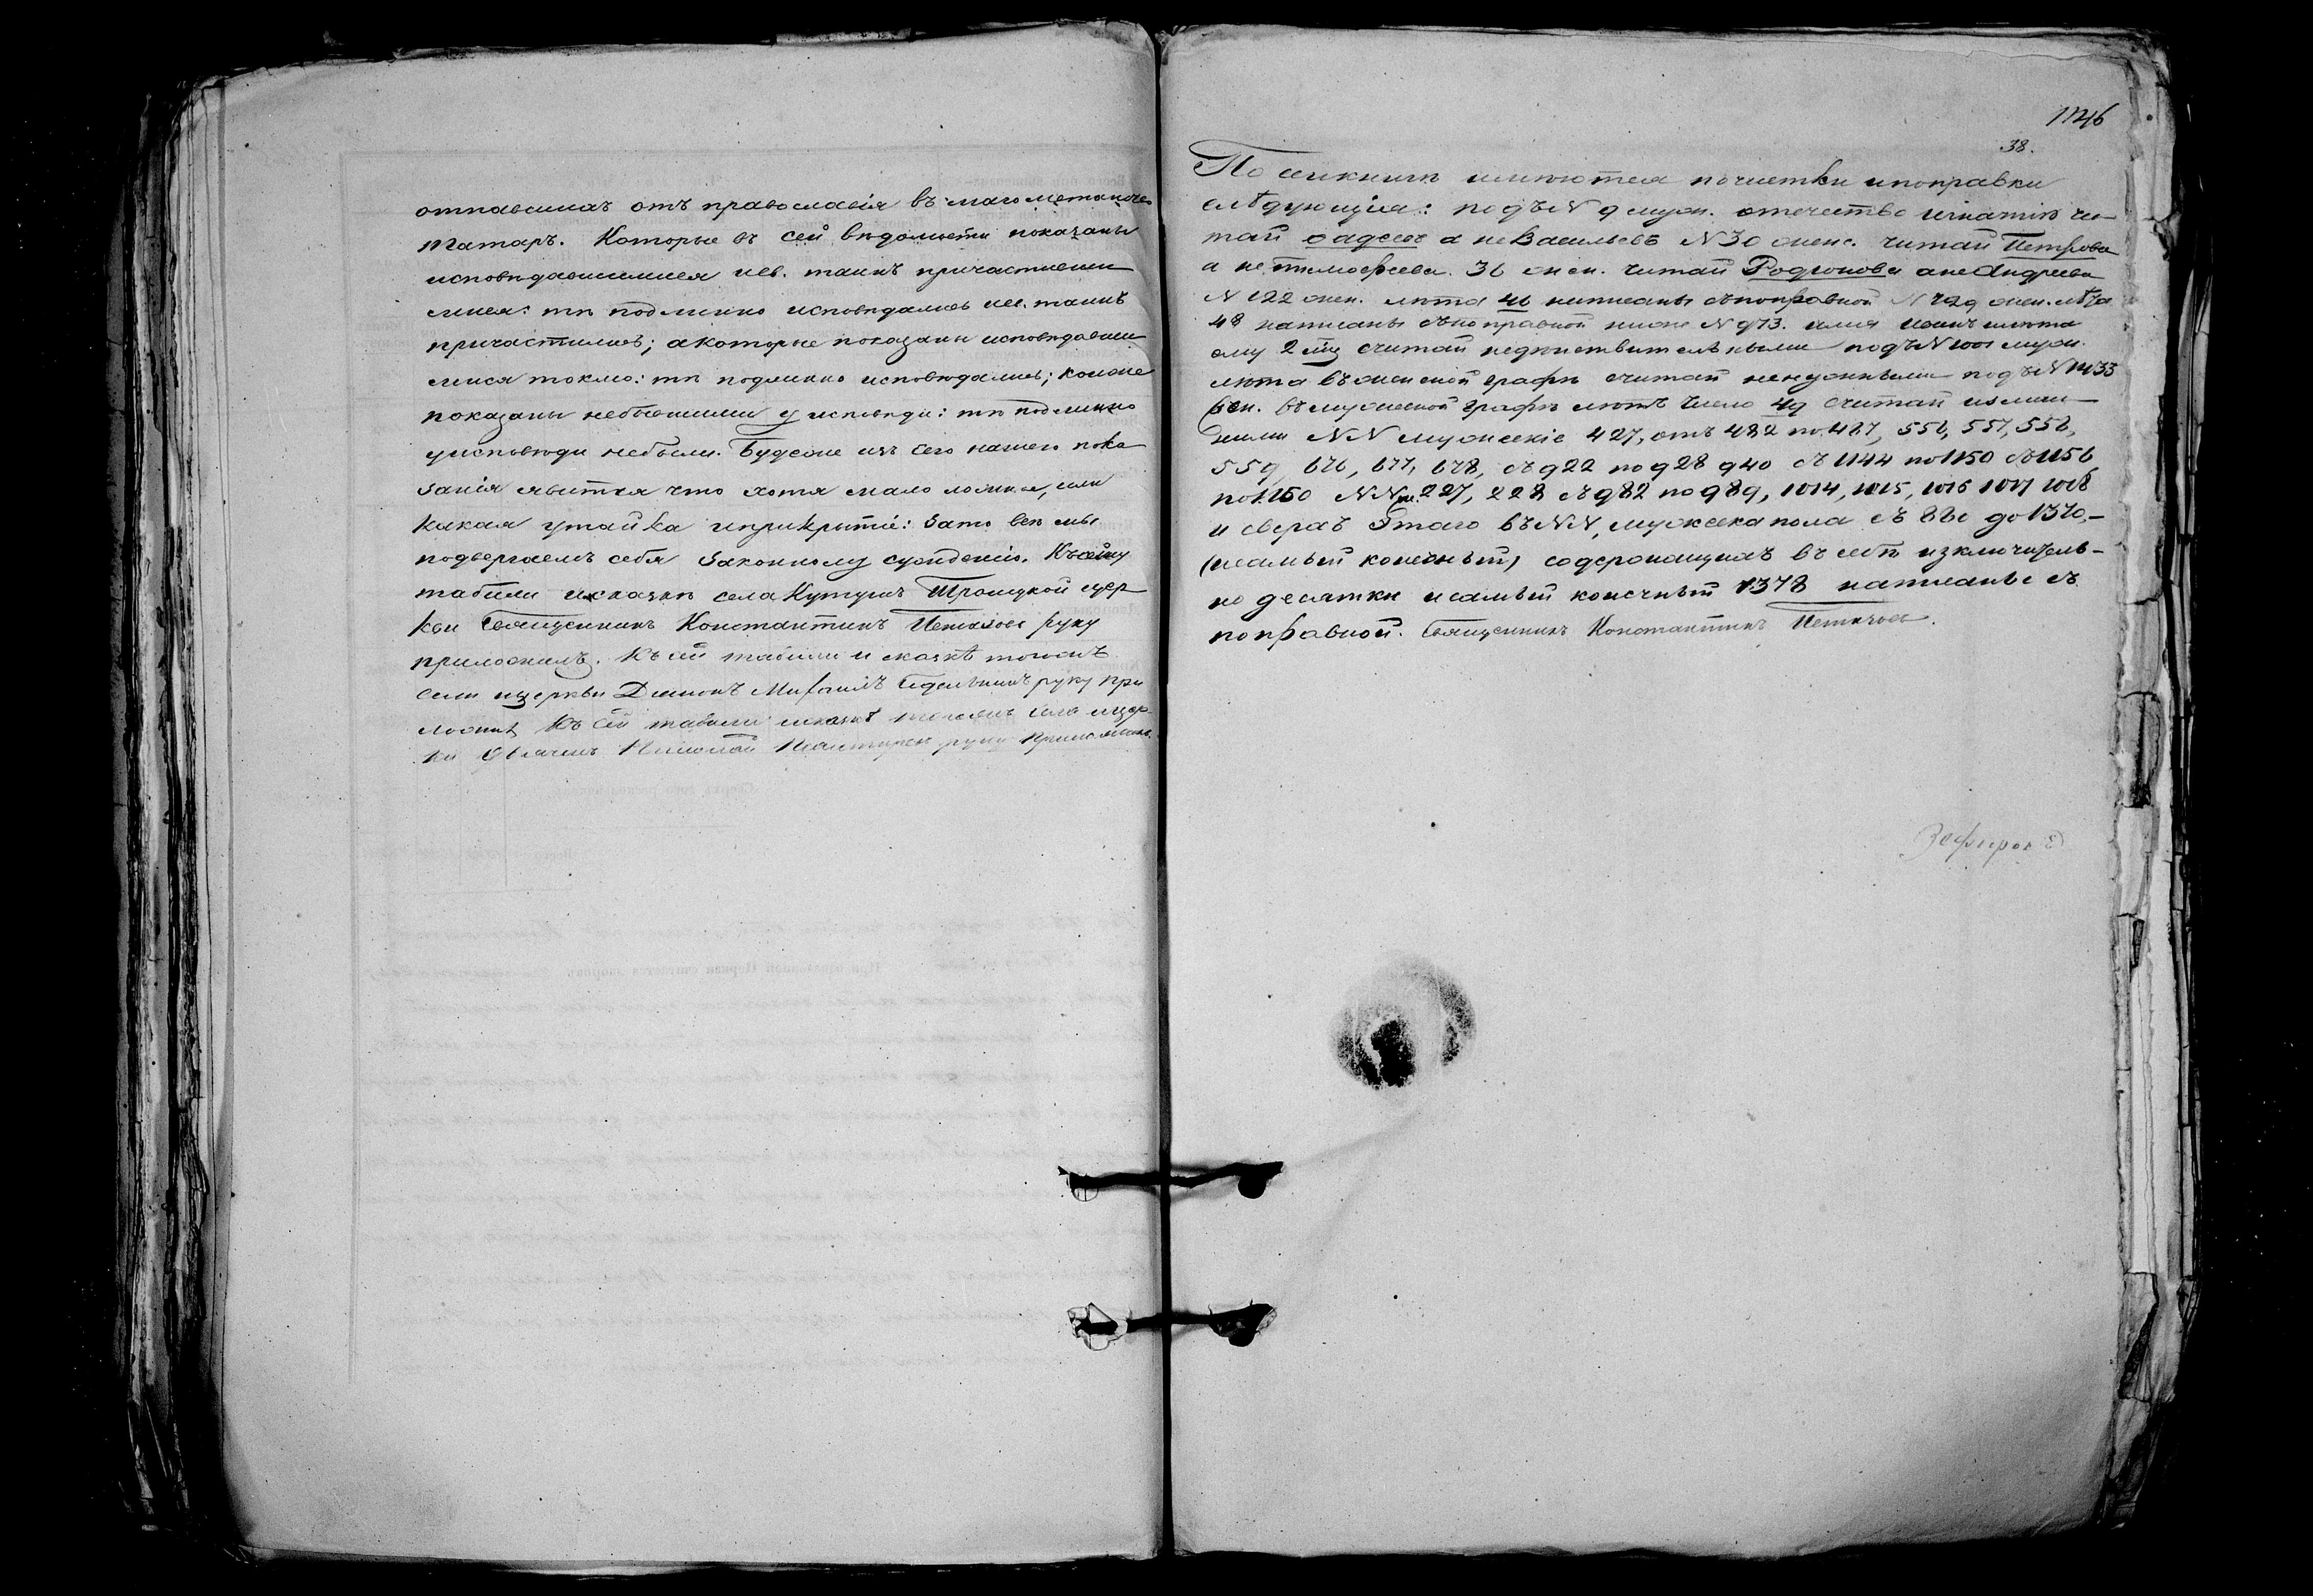 отпавшихъ отъ православія въ магометанство
Татаръ. Которые въ сей вѣдомости показаны
исповѣдавшимися и св. таинъ причастивши
мися: тѣ подлинно исповѣдались и св. таинъ
причастились; а которые показаны исповѣдавши
мися токмо: тѣ подлинно исповѣдались; кои же
показаны небывшими у исповѣди: тѣ подлинно
у исповѣди небыли. Буде же изъ сего нашего пока
занія явится что хотя мало ложное, или
какая утайка и прикрытіе: за то всѣ мы
подвергаемъ себя законному сужденію. Къ сему
табели и сказкѣ села Кутушъ Троицкой цер
кви Священникъ Константинъ руку
приложилъ. Къ сей табели и сказкѣ тогожъ
села и церкви Діаконъ Михаилъ руку при
ложилъ Къ сей табели и сказкѣ тогожъ села и цер
кви Николай руку приложилъ.
1746
38.
По сей книгѣ имѣются почистки и поправки
слѣдующія: подъ N 9 муж. отечество Игнатія чи
тай Фадеевъ а не Васильевъ N 30 женс. читай Петрова
а не Тимофеева. 36 жен. читай Родіонова а не Андреева
N 122 жен. лѣта 46 написаны съ поправкой N 729 жен. лѣта
48 написаны съ поправкой ниже N 973. имя и лѣта
ему 2 мц считай недѣйствительными подъ N 1001 муж.
лѣта въ женской графѣ считай ненужными подъ N 1433
жен. въ мужеской графѣ лѣтъ число 49 считай излиш
нимъ NN мужескіе 427, отъ 482 по 487, 556, 557, 558,
559, 676, 677, 678, съ 922 по 928 940 съ 1144 по 1150 съ 1156
по 1160 NN 227, 228 съ 982 по 989, 1014, 1015, 1016 1017 1018
и сверхъ этаго въ NN, мужеска пола съ 880 до 1370,
(и самый конечный) содержащихъ въ себѣ изключитель-
но десятки и самый конечный 1378 написаны съ
поправкой. Священникъ Константинъ
Зефиров